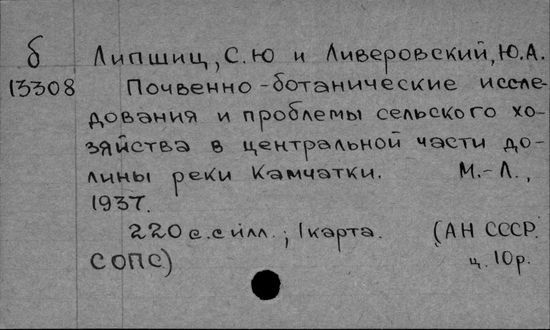 б Липшиц, С.Ю и Ливеровский, Ю.А.
13308 Почвенно-ботанические иссле-
дования и проблемы сельского хо-
зяйства в центральной части до-
лины реки Камчатки. М.-Л.,
1937.
220 с. с илл.; 1 карта. (АН СССР.
СОПС) ц. 10р.